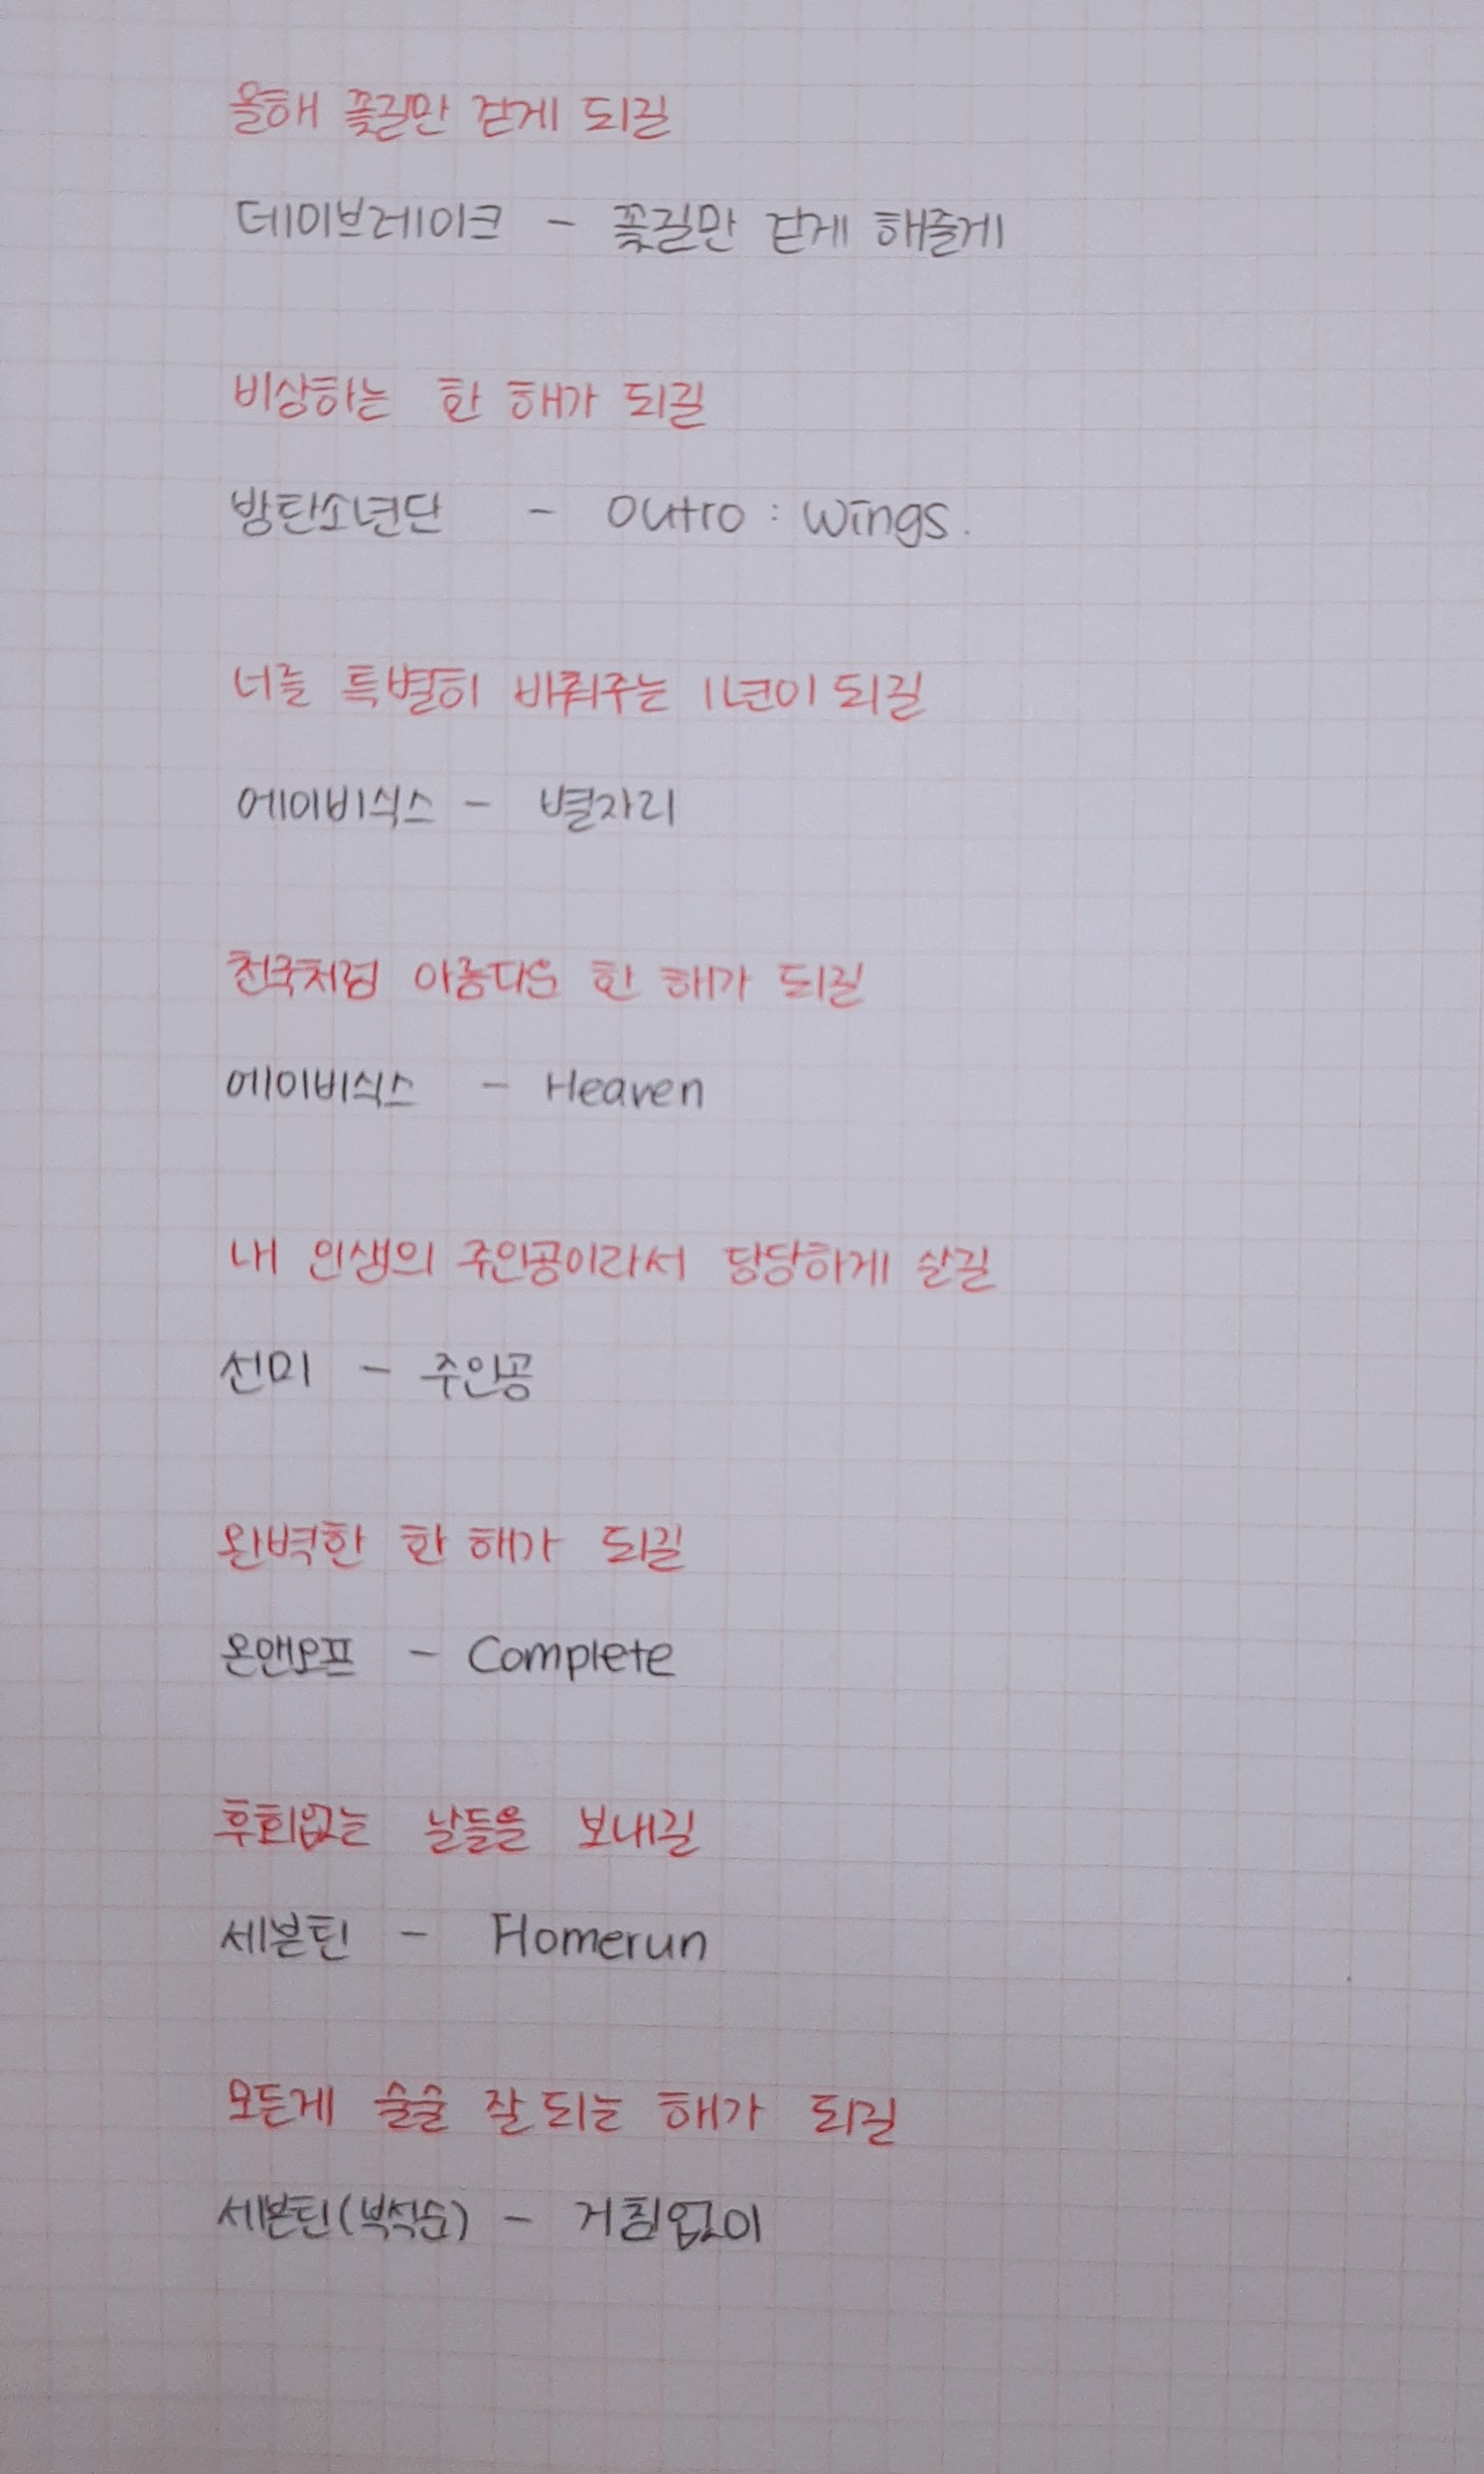 올해 꽃길만 걷게 되길
데이브레이크 - 꽃길만 걷게 해줄게
비상하는 한 해가 되길
방탄소년단 - Outro : Wings.
너를 특별히 바꿔주는 1년이 되길
에이비식스 - 별자리
천국처럼 아름다운 한 해가 되길
에이비식스 - Heaven
내 인생의 주인공이라서 당당하게 살길
선미 - 주인공
완벽한 한 해가 되길
온앤오프 - Complete
후회없는 날들을 보내길
세븐틴 - Homerun
모든게 술술 잘 되는 해가 되길
세븐틴(부석순) - 거침없이